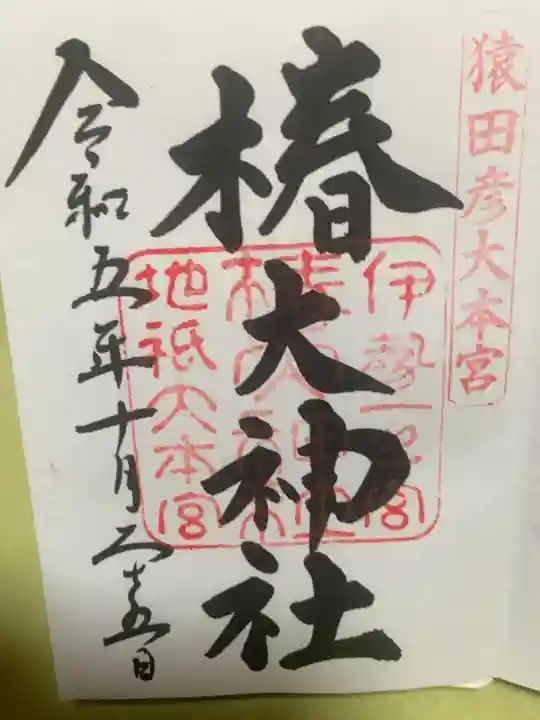 猿田彦大本宮
椿大神社
伊勢一宮
椿大神社
地祇大本宮
令和五年十月二十五日